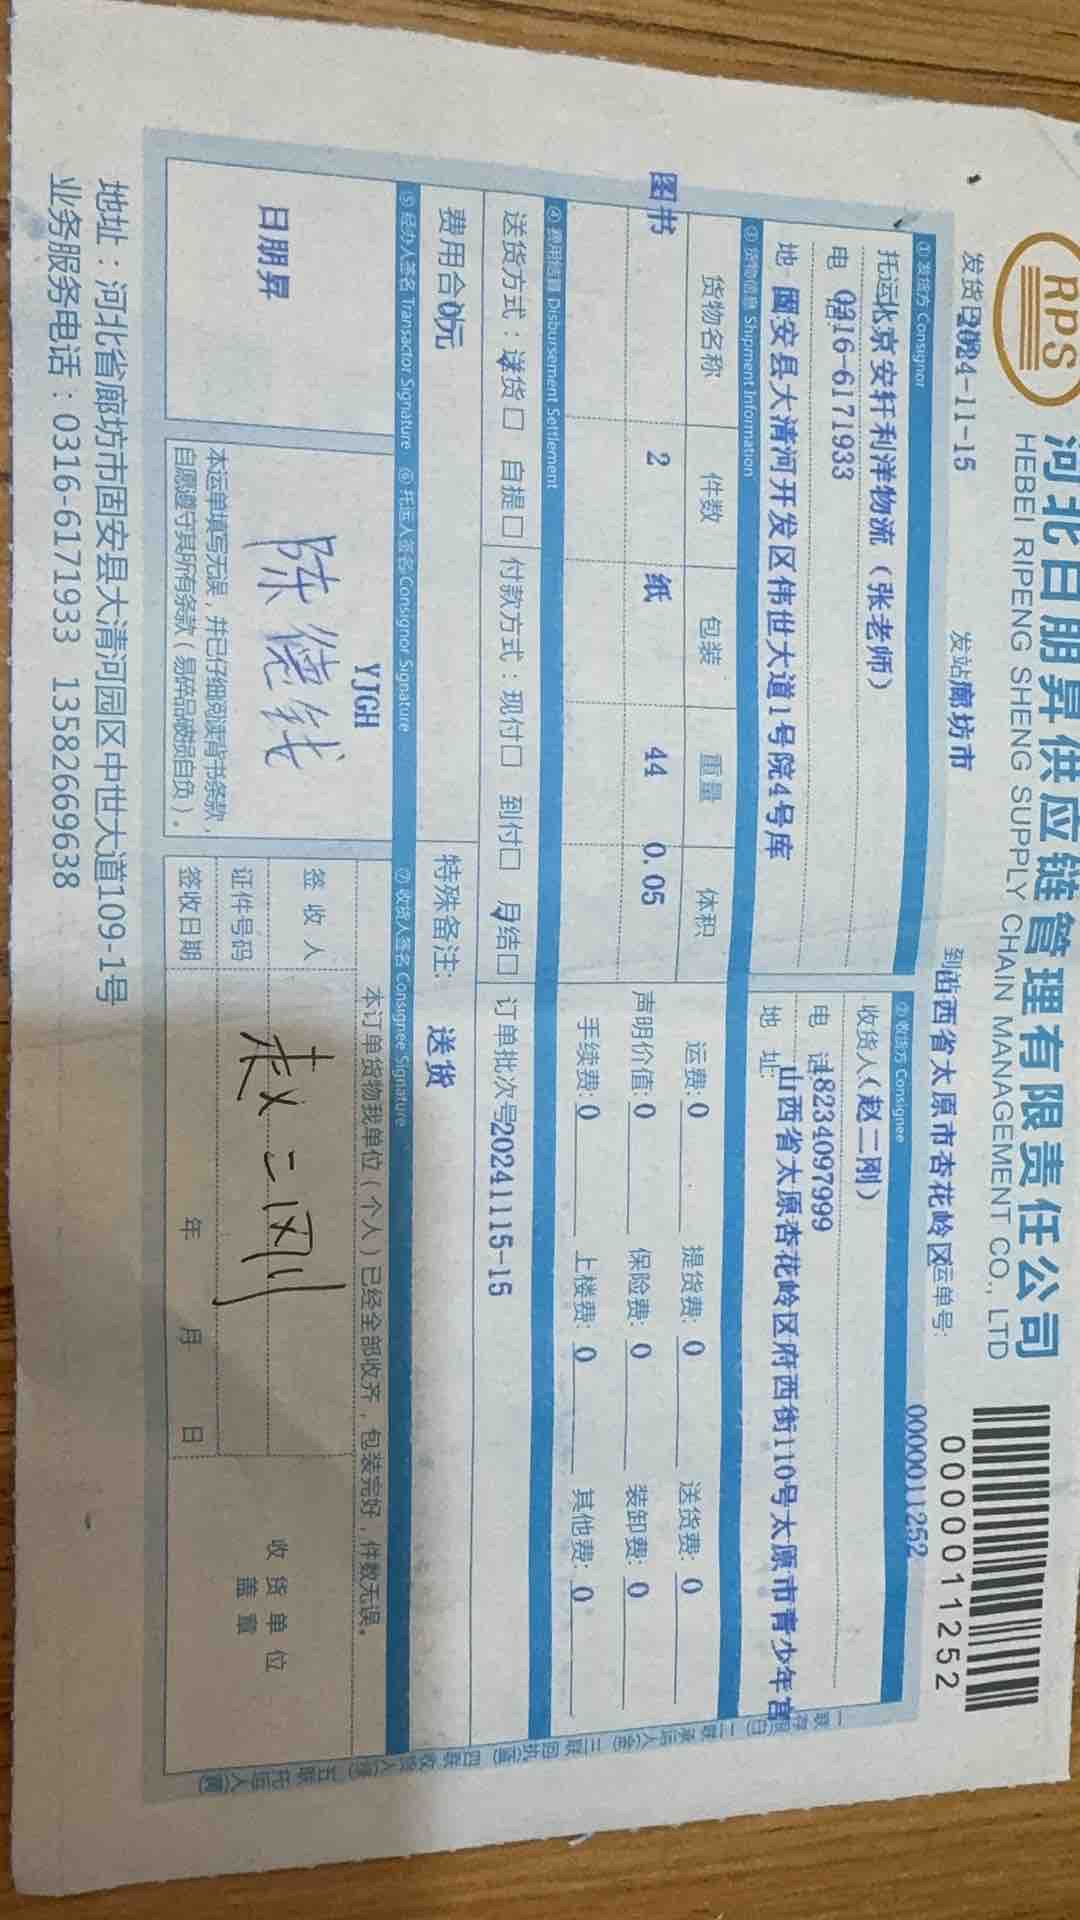 RPS
河北日朋昇供应链管理有限责任公司
HEBEI RIPENG SHENG SUPPLY CHAIN MANAGEMENT CO., LTD
0000011252
发货日期2024-11-15 发站廊坊市 到站山西省太原市杏花岭区 运单号: 0000011252
① 发货方 Consignor
托运人北京安轩利洋物流（张老师）
电 话0316-6171933
地 固安县大清河开发区伟世大道1号院4号库
② 收货方 Consignee
收货人（赵二刚）
电 话18234097999
地 址: 山西省太原杏花岭区府西街110号太原市青少年宫
③ 货物信息 Shipment Information
货物名称 件数 包装 重量 体积
图书 2 纸 44 0.05
运费:0 提货费: 0 送货费: 0
声明价值:0 保险费: 0 装卸费: 0
手续费:0 上楼费: 0 其他费: 0
④ 费用结算 Disbursement Settlement
送货方式：送货口 自提口 付款方式：现付口 到付口 月结口 订单批次号20241115-15
费用合计0元 特殊备注: 送货
⑤ 经办人签名 Transactor Signature ⑥ 托运人签名 Consignor Signature ⑦ 收货人签名 Consignee Signature
日朋昇
YJGH
陈德钱
本运单填写无误，并已仔细阅读背书条款，
自愿遵守其所有条款（易碎品破损自负）。
本订单货物我单位（个人）已经全部收齐，包装完好，件数无误。
签收人 赵二刚
证件号码
签收日期 年 月 日
收货单位
盖章
一联存根(白) 二联承运人(金) 三联回执(蓝) 四联收货人(绿) 五联托运人(黄)
地址：河北省廊坊市固安县大清河园区中世大道109-1号
业务服务电话：0316-6171933 13582669638